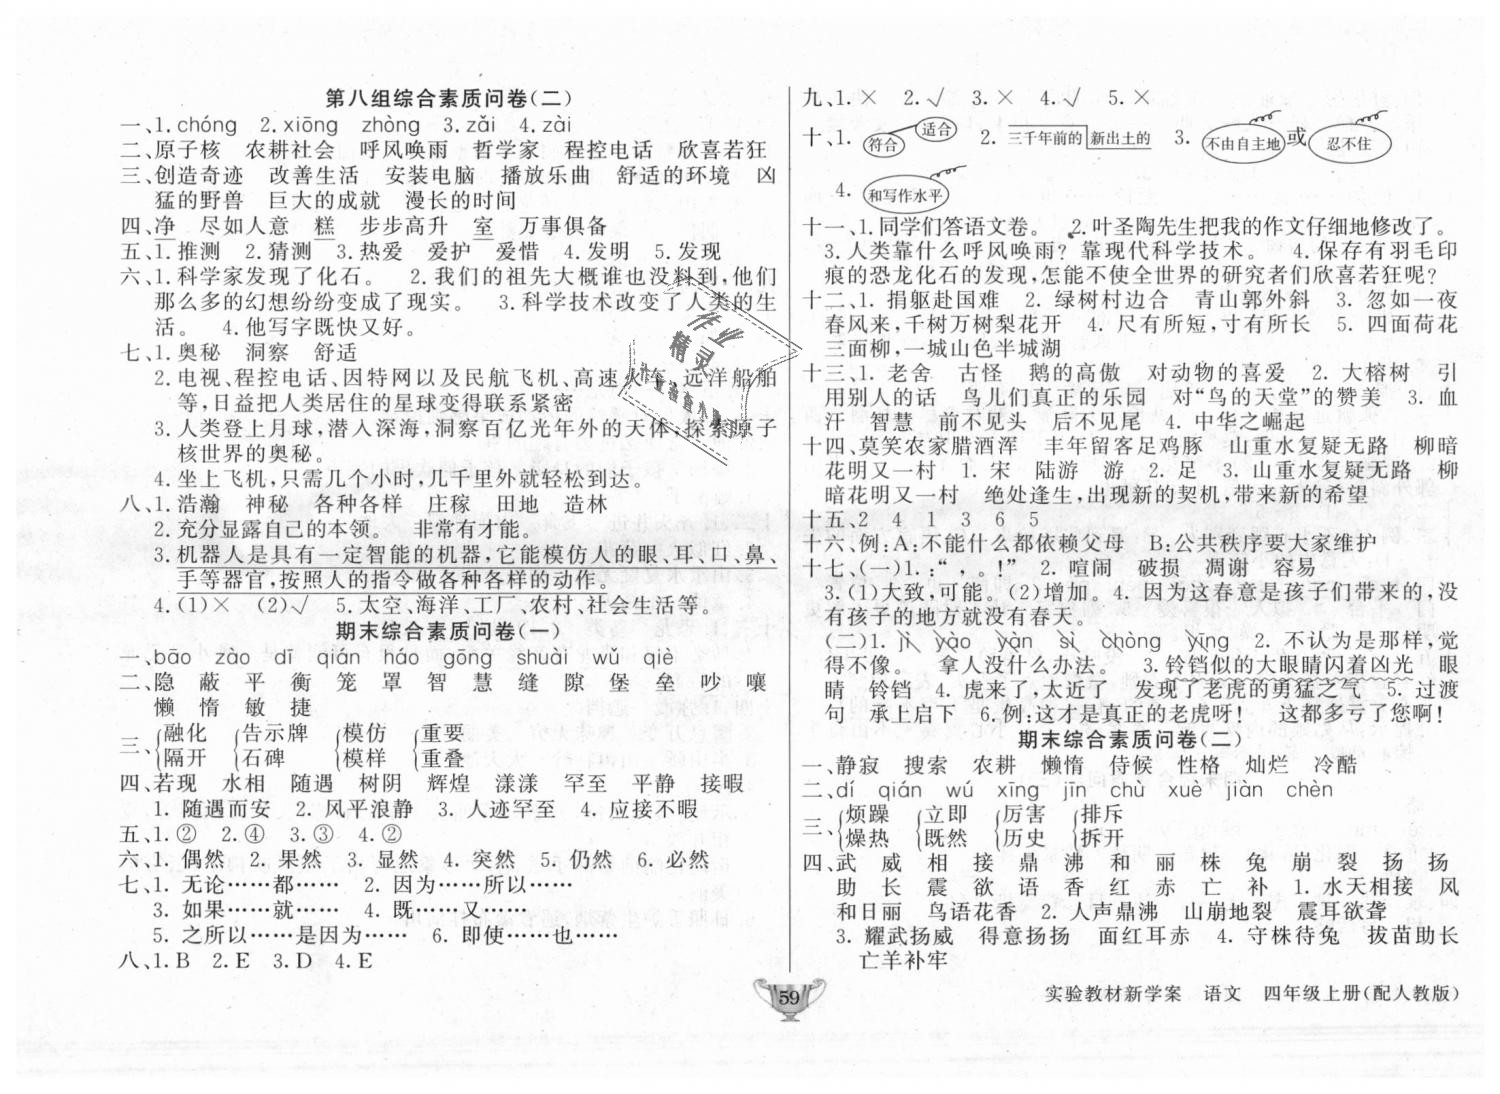 第八组综合素质问卷(二)
一、1.chóng 2.xiōng zhòng 3.zǎi 4.zài
二、原子核 农耕社会 呼风唤雨 哲学家 程控电话 欣喜若狂
三、创造奇迹 改善生活 安装电脑 播放乐曲 舒适的环境 凶
猛的野兽 巨大的成就 漫长的时间
四、净 尽如人意 糕 步步高升 室 万事俱备
五、1.推测 2.猜测 3.热爱 爱护 爱惜 4.发明 5.发现
六、1.科学家发现了化石。 2.我们的祖先大概谁也没料到,他们
那么多的幻想纷纷变成了现实。 3.科学技术改变了人类的生
活。 4.他写字既快又好。
七、1.奥秘 洞察 舒适
2.电视、程控电话、因特网以及民航飞机、高速火车、远洋船舶
等,日益把人类居住的星球变得联系紧密
3.人类登上月球,潜入深海,洞察百亿光年外的天体,探索原子
核世界的奥秘。
4.坐上飞机,只需几个小时,几千里外就轻松到达。
八、1.浩瀚 神秘 各种各样 庄稼 田地 造林
2.充分显露自己的本领。 非常有才能。
3.机器人是具有一定智能的机器,它能模仿人的眼、耳、口、鼻、
手等器官,按照人的指令做各种各样的动作。
4.(1)× (2)√ 5.太空、海洋、工厂、农村、社会生活等。
期末综合素质问卷(一)
一、bāo zào dī qián háo gōng shuài wǔ qiè
二、隐 蔽 平 衡 笼 罩 智 慧 缝 隙 堡 垒 吵 嚷
懒 惰 敏 捷
三、{融化 {告示牌 {模仿 {重要
隔开 石碑 模样 重叠
四、若现 水相 随遇 树阴 辉煌 漾漾 罕至 平静 接暇
1.随遇而安 2.风平浪静 3.人迹罕至 4.应接不暇
五、1.② 2.④ 3.③ 4.②
六、1.偶然 2.果然 3.显然 4.突然 5.仍然 6.必然
七、1.无论……都…… 2.因为……所以……
3.如果……就…… 4.既……又……
5.之所以……是因为…… 6.即使……也……
八、1.B 2.E 3.D 4.E
九、1.× 2.√ 3.× 4.√ 5.×
十、1.符合 适合 2.三千年前的 新出土的 3.不由自主地 或 忍不住
4.和写作水平
十一、1.同学们答语文卷。 2.叶圣陶先生把我的作文仔细地修改了。
3.人类靠什么呼风唤雨?靠现代科学技术。 4.保存有羽毛印
痕的恐龙化石的发现,怎能不使全世界的研究者们欣喜若狂呢?
十二、1.捐躯赴国难 2.绿树村边合 青山郭外斜 3.忽如一夜
春风来,千树万树梨花开 4.尺有所短,寸有所长 5.四面荷花
三面柳,一城山色半城湖
十三、1.老舍 古怪 鹅的高傲 对动物的喜爱 2.大榕树 引
用别人的话 鸟儿们真正的乐园 对“鸟的天堂”的赞美 3.血
汗 智慧 前不见头 后不见尾 4.中华之崛起
十四、莫笑农家腊酒浑 丰年留客足鸡豚 山重水复疑无路 柳暗
花明又一村 1.宋 陆游 游 2.足 3.山重水复疑无路 柳
暗花明又一村 绝处逢生,出现新的契机,带来新的希望
十五、2 4 1 3 6 5
十六、例:A:不能什么都依赖父母 B:公共秩序要大家维护
十七、(一)1.:“ , 。!” 2.喧闹 破损 凋谢 容易
3.(1)大致,可能。(2)增加。 4.因为这春意是孩子们带来的,没
有孩子的地方就没有春天。
(二)1.jì yào yàn sì chòng yīng 2.不认为是那样,觉
得不像。 拿人没什么办法。 3.铃铛似的大眼睛闪着凶光 眼
睛 铃铛 4.虎来了,太近了 发现了老虎的勇猛之气 5.过渡
句 承上启下 6.例:这才是真正的老虎呀! 这都多亏了您啊!
期末综合素质问卷(二)
一、静寂 搜索 农耕 懒惰 侍候 性格 灿烂 冷酷
二、dí qián wú xīng jīn chù xuè jiàn chèn
三、{烦躁 {立即 {厉害 {排斥
燥热 既然 历史 拆开
四、武 威 相 接 鼎 沸 和 丽 株 兔 崩 裂 扬 扬
助 长 震 欲 语 香 红 赤 亡 补 1.水天相接 风
和日丽 鸟语花香 2.人声鼎沸 山崩地裂 震耳欲聋
3.耀武扬威 得意扬扬 面红耳赤 4.守株待兔 拔苗助长
亡羊补牢
59
实验教材新学案 语文 四年级上册(配人教版)
作业
精灵